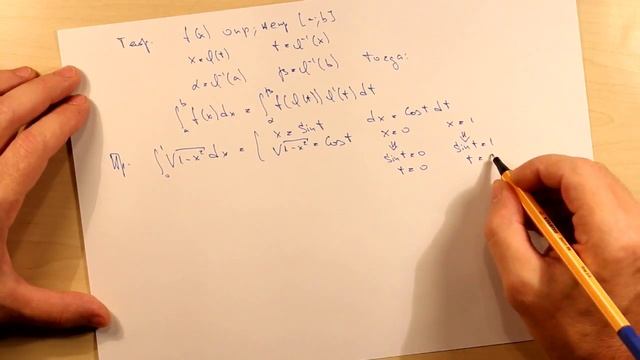 Теор. f(x) опр; непр [a;b]
x = φ(t) t = φ⁻¹(x)
α = φ⁻¹(a) β = φ⁻¹(b) тогда:
∫ₐᵇ f(x)dx = ∫_α^β f(φ(t)) φ'(t) dt
Пр. ∫₀¹ √1-x² dx = { x = sin t dx = cos t dt
√1-x² = cos t x = 0 x = 1
⇓ ⇓
sin t = 0 sin t = 1
t = 0 t =